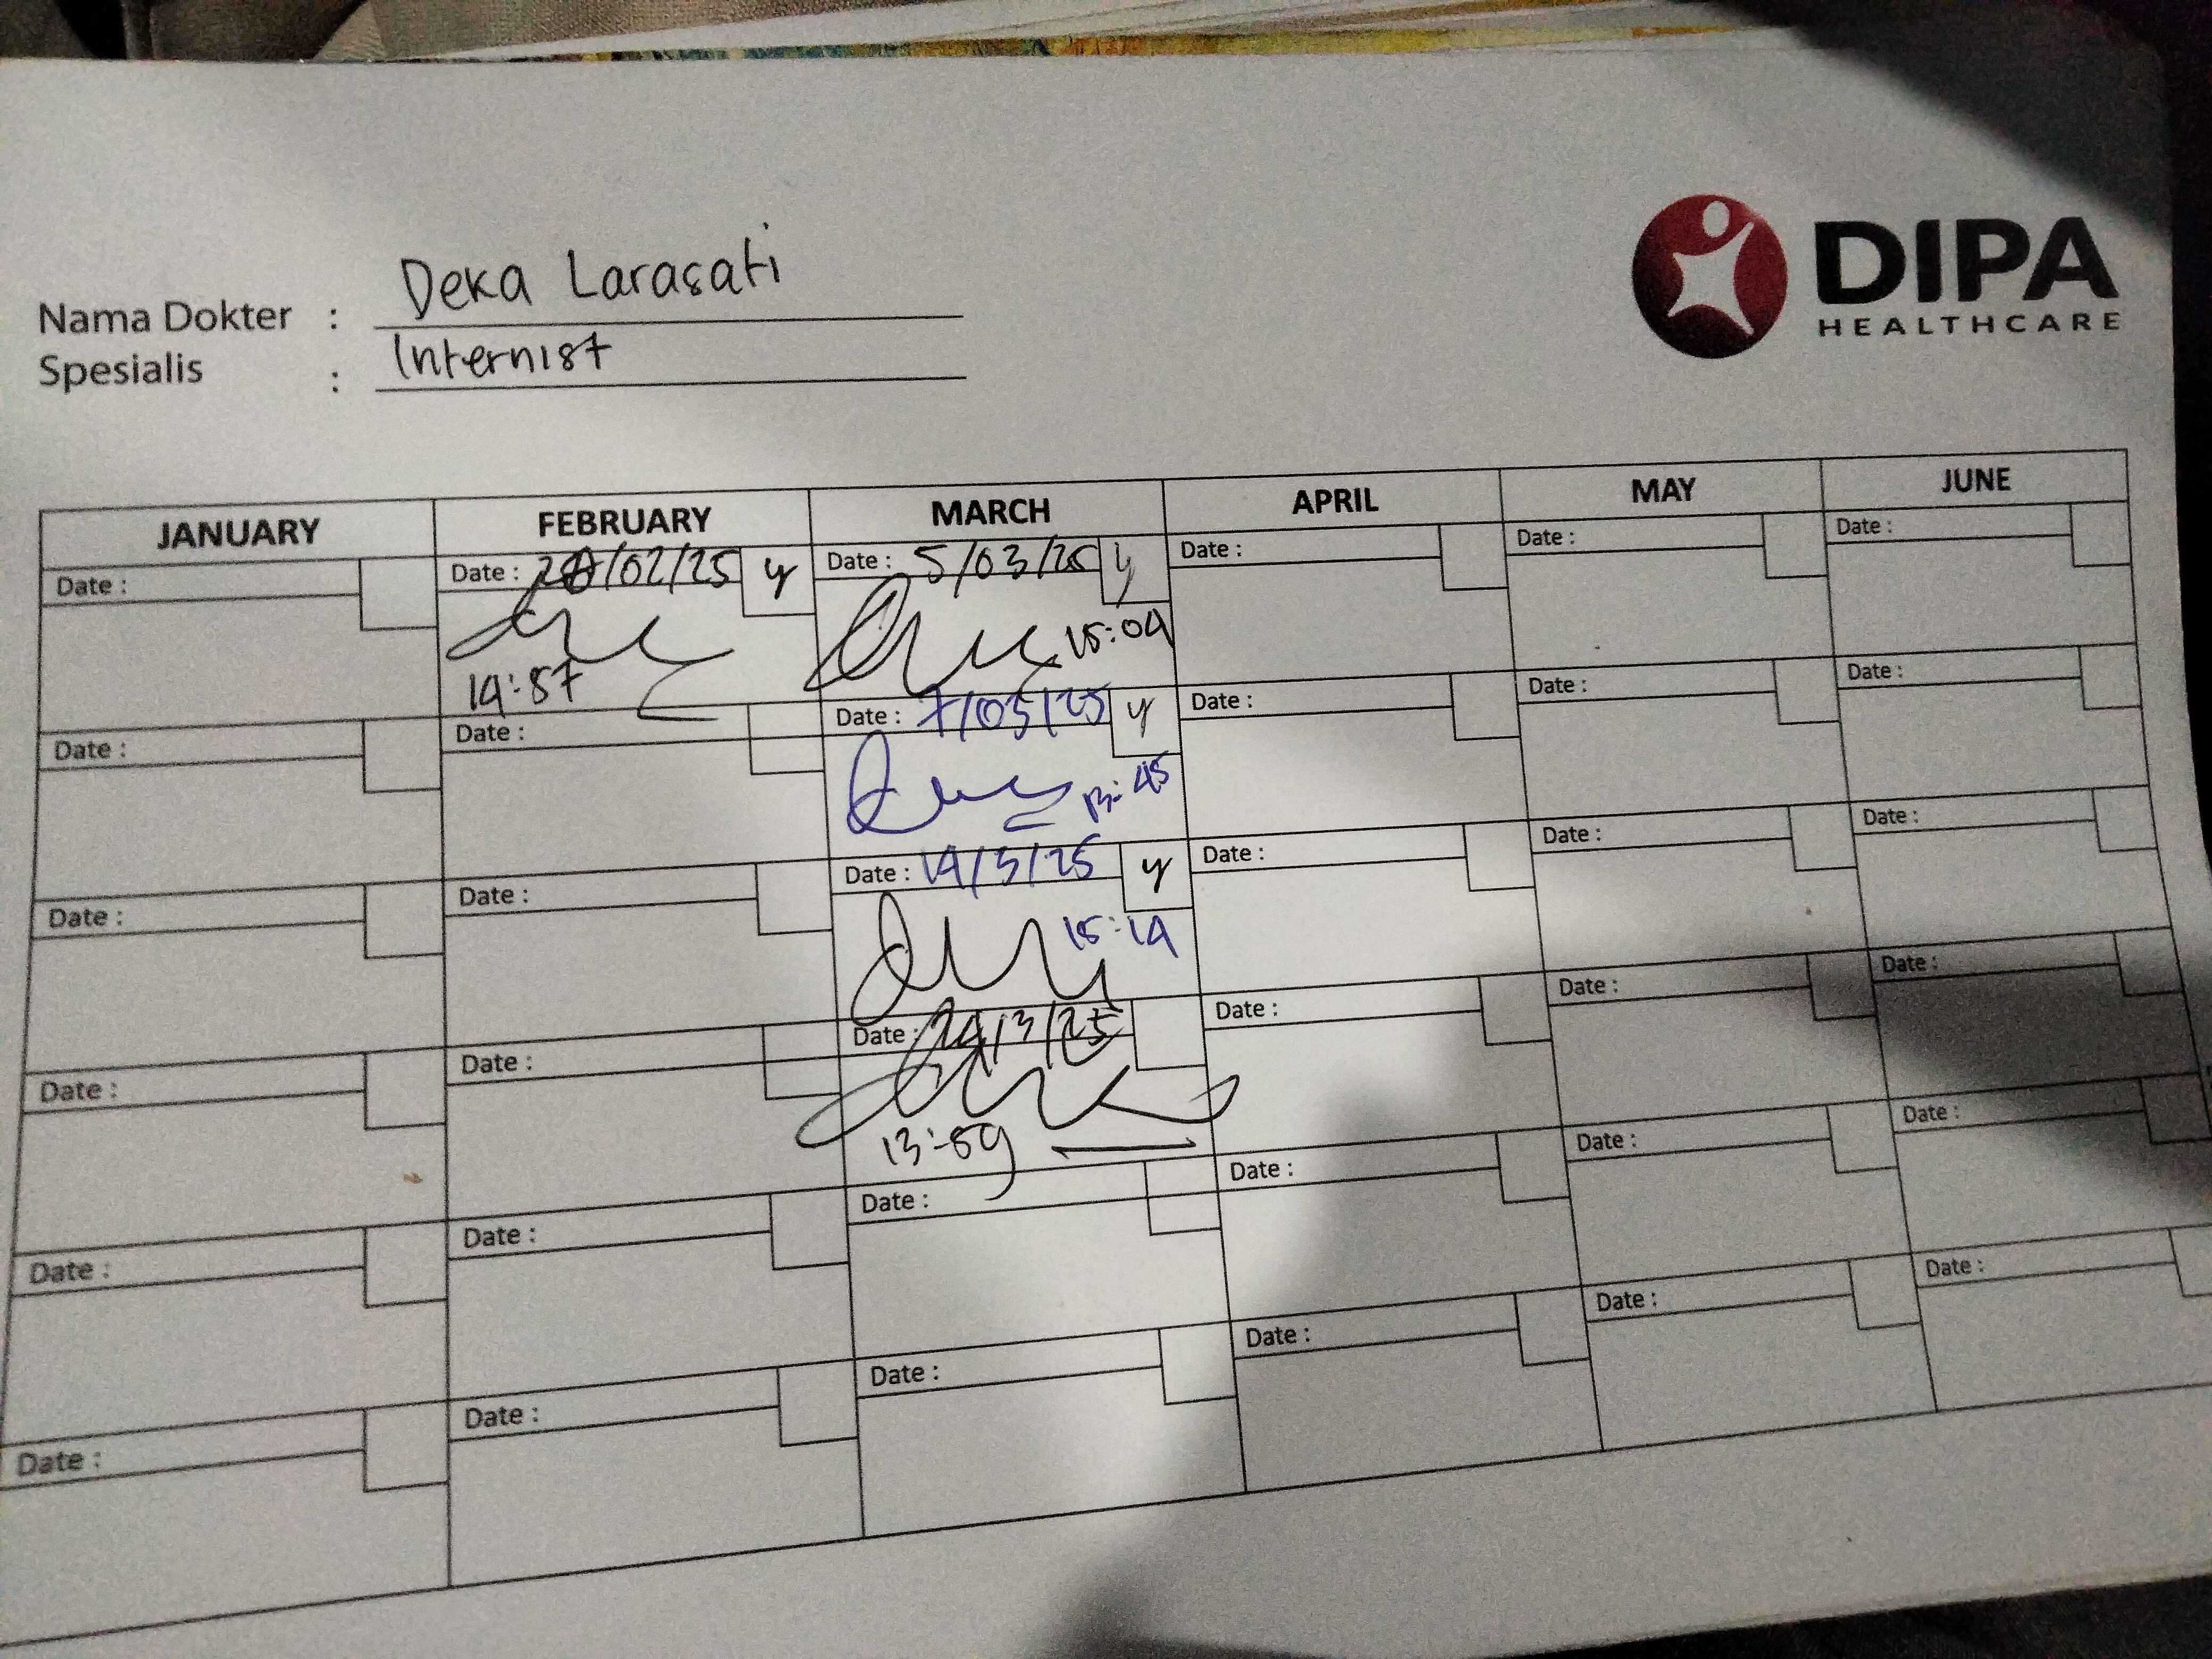 DIPA
HEALTHCARE
Nama Dokter : Deka Larasati
Spesialis : Internist
JANUARY FEBRUARY MARCH APRIL MAY JUNE
Date : Date : /02/25 y Date : 5/03/25 y Date : Date : Date :
15:09
Date : Date : Date : 7/03/25 y Date : Date : Date :
13:45
Date : Date : Date : 19/3/25 y Date : Date : Date :
15:19
Date : Date : Date : /3/25 Date : Date : Date :
13:59
Date : Date : Date : Date : Date : Date :
Date : Date : Date : Date : Date : Date :